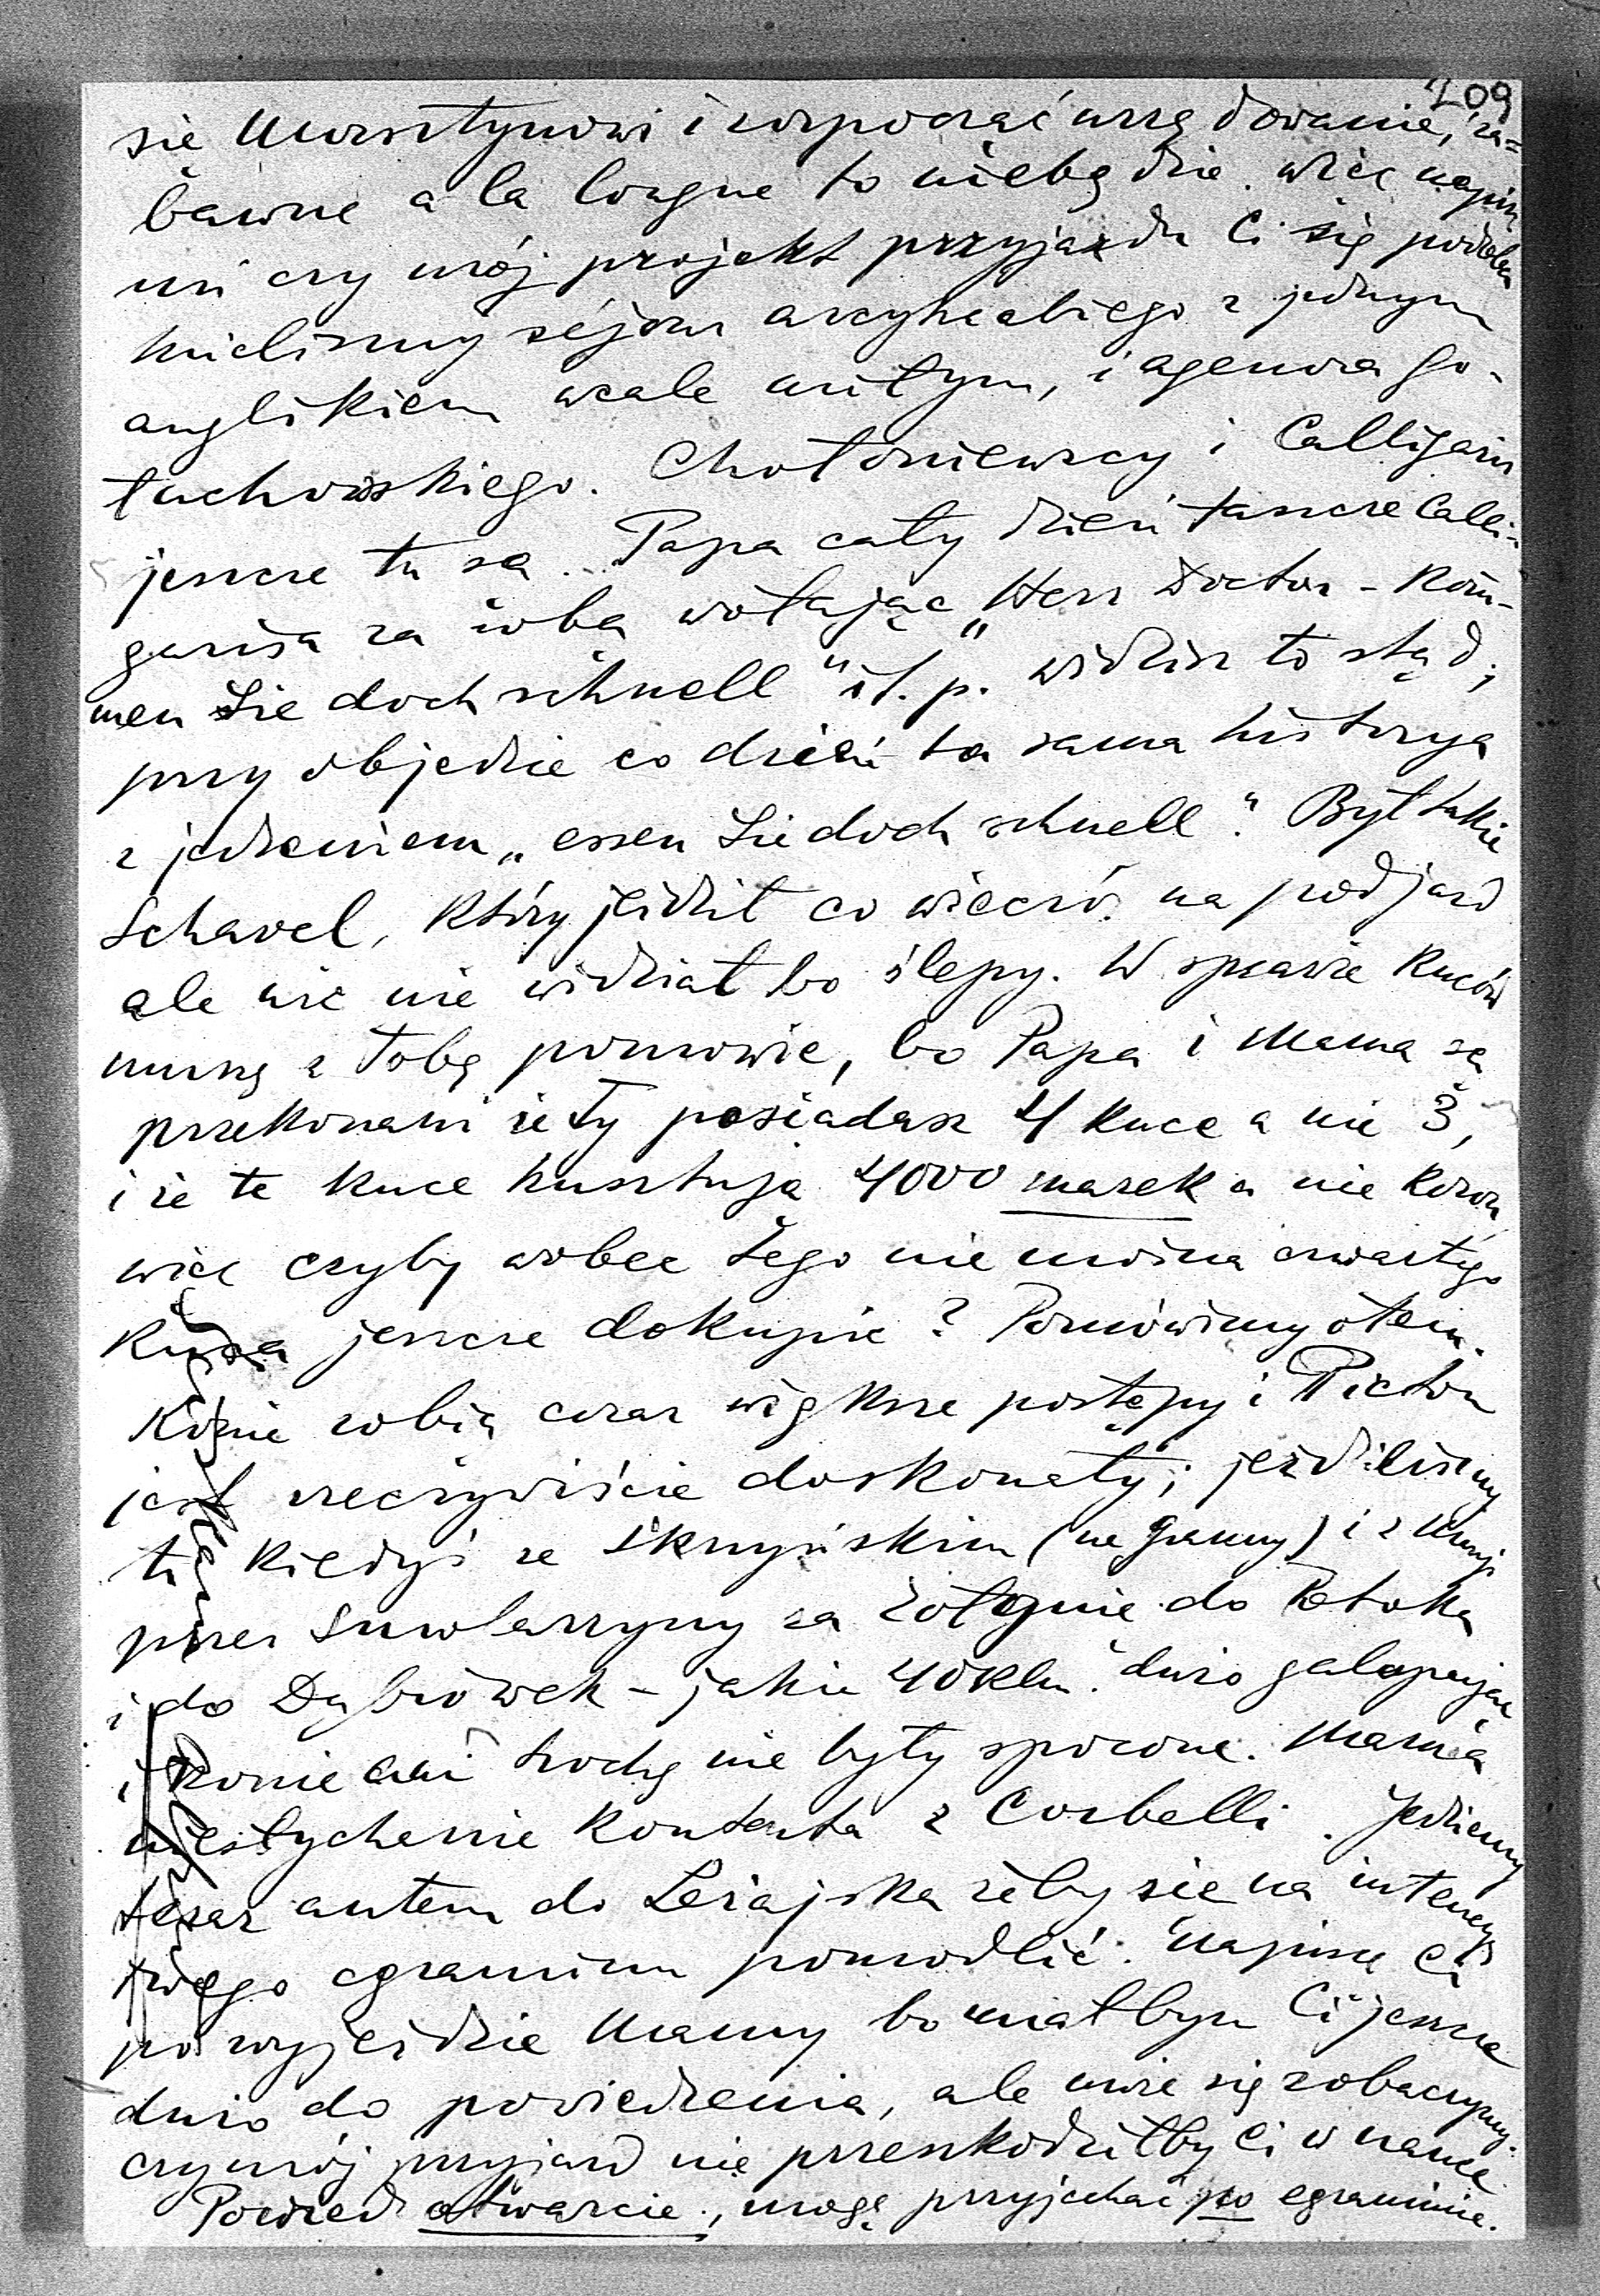 209
się Morsztynowi i rozpocząć urzędowanie, za=
bawne a la longue to niebędzie. więc napisz
mi czy mój projekt przyjazdu Ci się podoba
mieliśmy séjour arcyheckiego z jednym
anglikiem wcale miłym, i agenora Go-
łuchowskiego. Chołoniewscy i Calligaris
jeszcze tu są. Papa cały dzień taszcze Calli-
garisa za sobą wołając „Herr Doctor - Kom-
men Sie doch schnell" i t. p. widzisz to stąd;
przy objedzie co dzień ta sama historya
z jedzeniem „essen Sie doch schnell". Był także
Schavel, który jeździł co wieczór na podjazd
ale nic nie widział bo ślepy. W sprawie Kuców
muszę z Tobą pomowić, bo Papa i Mama są
przekonani że Ty posiadasz 4 kuce a nie 3,
i że te kuce kusztują 4000 marek a nie Koron
więc czyby wobec tego nie można czwartego
Kuca jeszcze dokupić? Pomówimy o tem.
Konie robią coraz większe postępy i Picton
jest rzeczywiście doskonały; jeździliśmy
tu kiedyś ze Skrzyńskim (na Gramy) i z
przez Smolarzyny za Żołynie do Potoka
i do Dąbrówek - jakie 40 Klm. dużo galopując
i Konie ani trochę nie były spocone. Mama
niesłychenie kontenta z Corbelli. Jedziemy
teraz autem do Leżajska żeby się na intencyę
twego egzaminu pomodlić. Napiszę Ci
po wyjeździe Mamy bo miałbym Ci jeszcze
dużo do powiedzenia, ale może się zobaczymy.
czy mój przyjazd nie przeszkodziłby Ci w nauce
Powiedz otwarcie, mogę przyjechać po egzaminie.